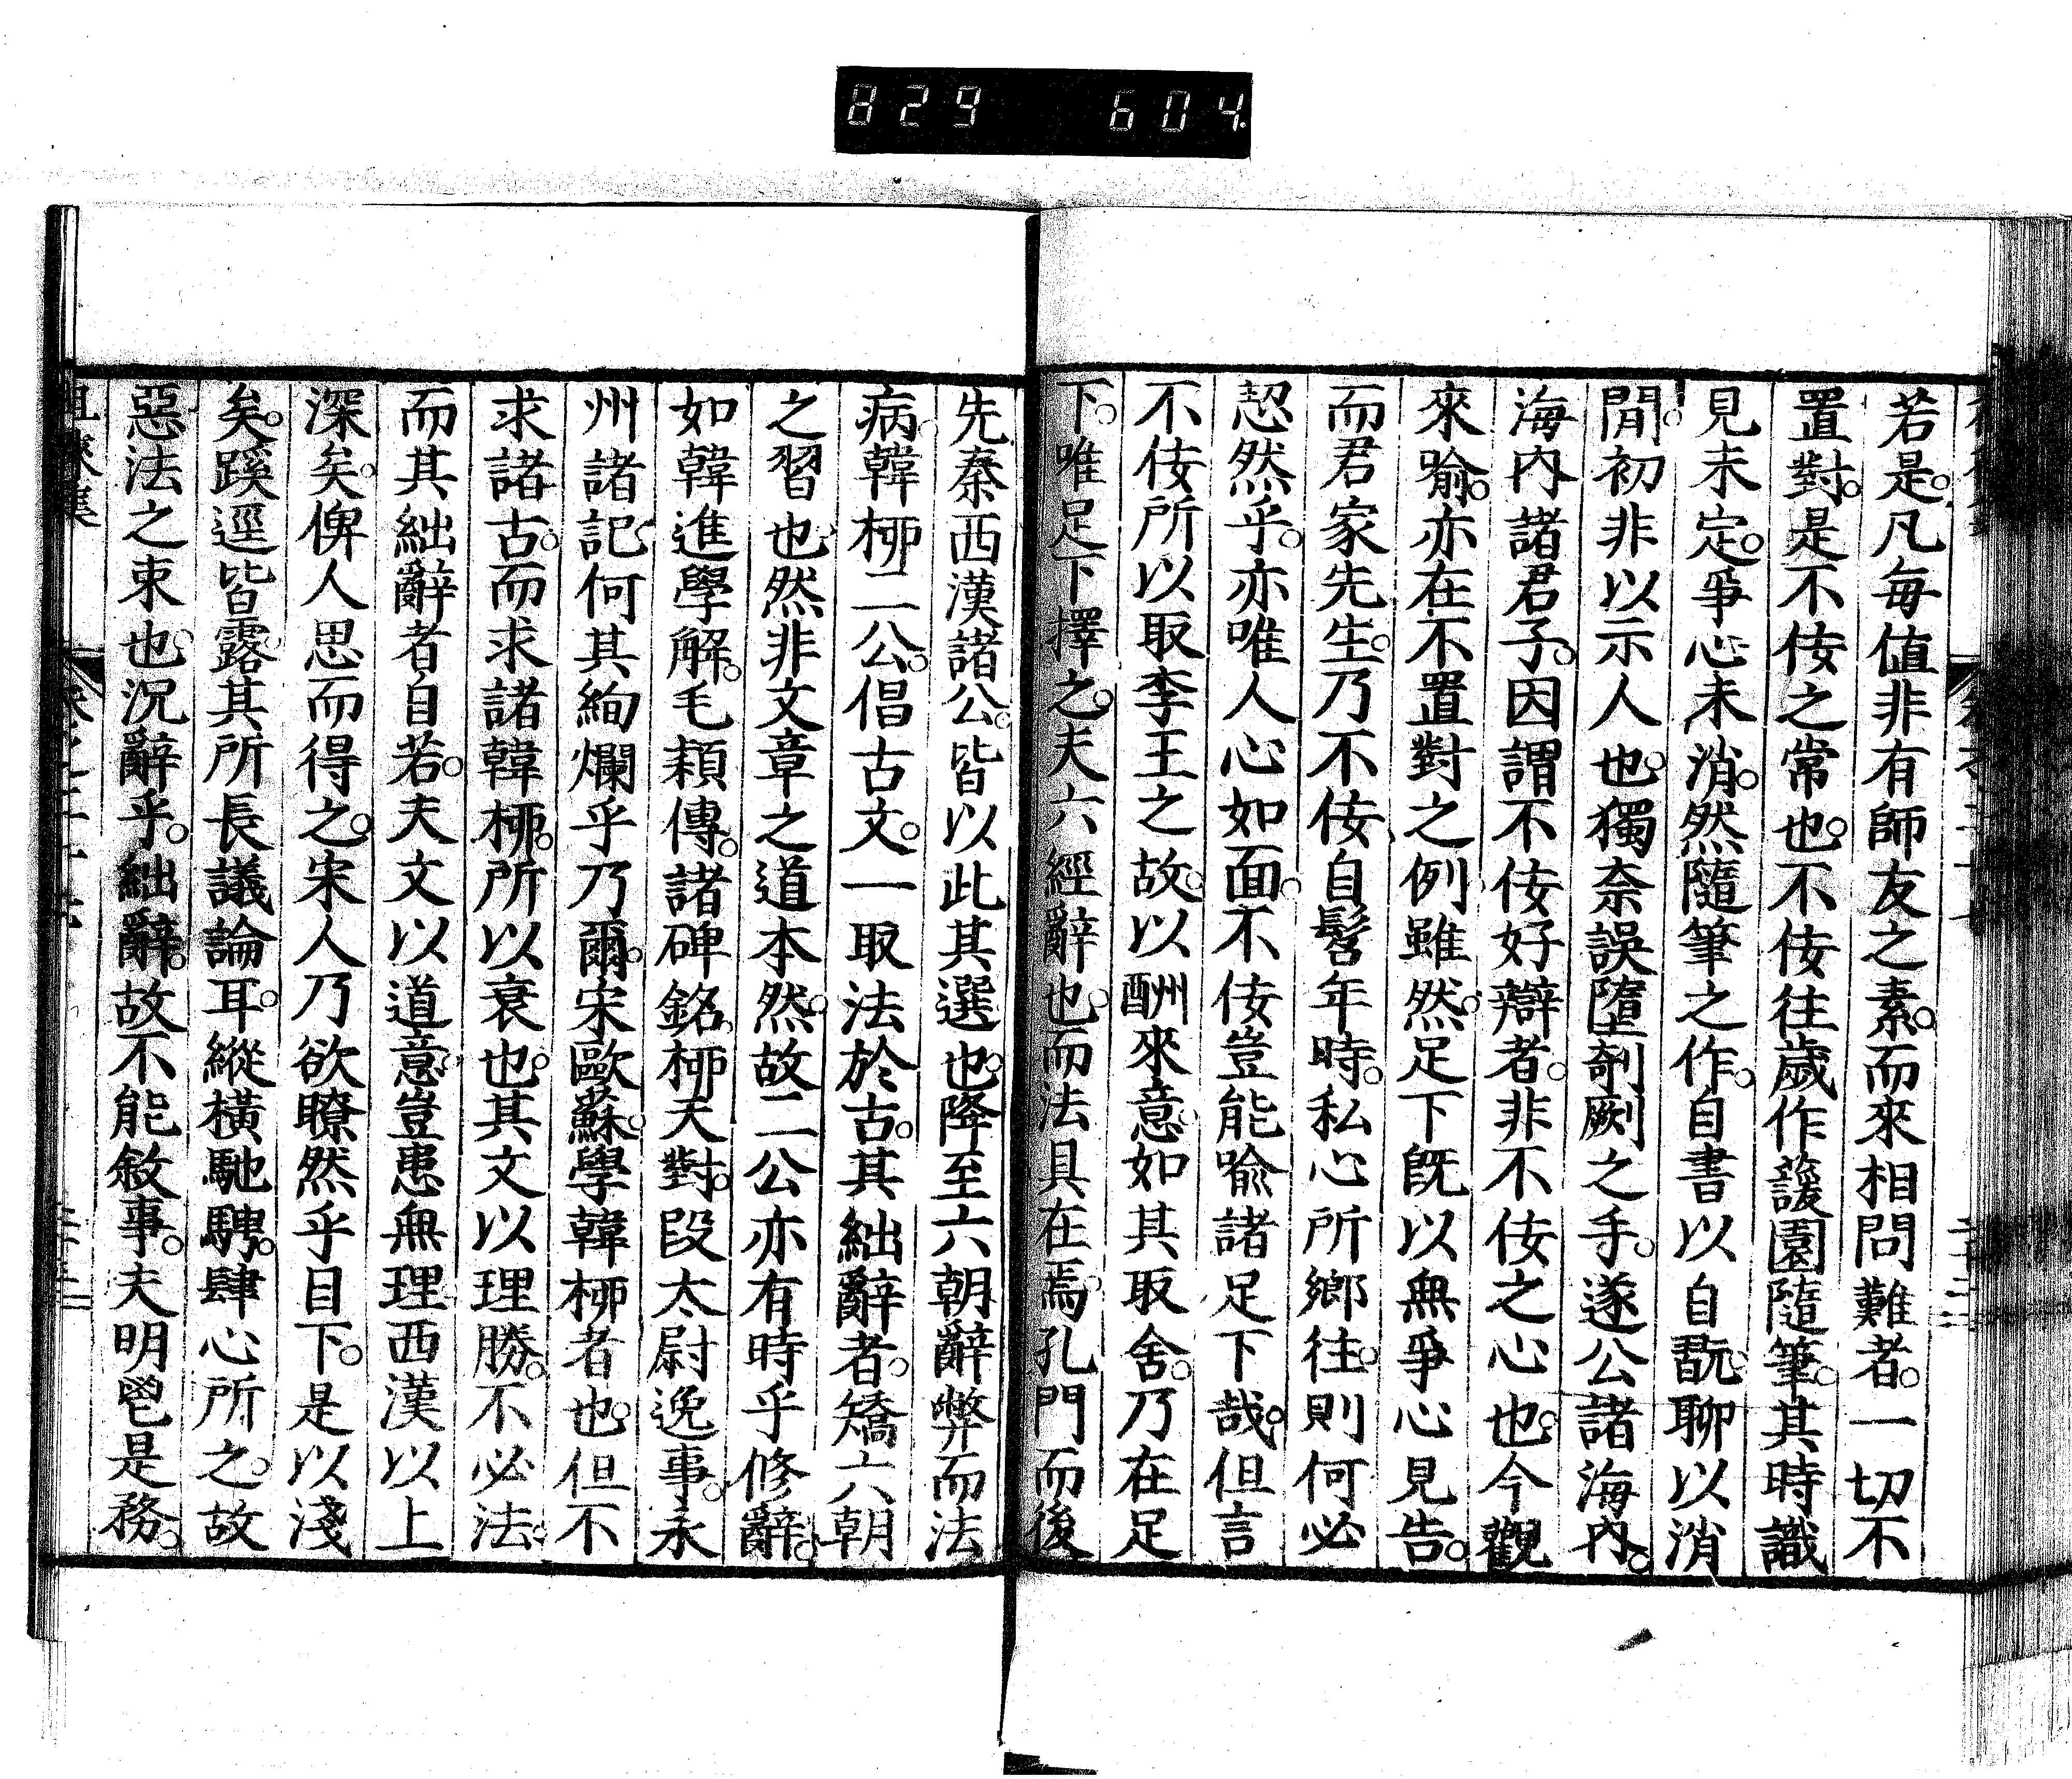 829 604
若是。凡每值非有師友之素。而來相問難者。一切不
置對。是不佞之常也。不佞往歲作蘐園隨筆。其時識
見未定。爭心未消。然隨筆之作。自書以自翫。聊以消
閒。初非以示人也。獨奈誤墮剞劂之手。遂公諸海內。
海內諸君子。因謂不佞好辯者。非不佞之心也。今觀
來喻。亦在不置對之例。雖然。足下旣以無爭心見告。
而君家先生。乃不佞自髫年時。私心所鄉往。則何必
恝然乎。亦唯人心如面。不佞豈能喻諸足下哉。但言
不佞所以取李王之故。以酬來意。如其取舍。乃在足
下。唯足下擇之。夫六經辭也。而法具在焉。孔門而後
先秦西漢諸公。皆以此其選也。降至六朝。辭弊而法
病。韓柳二公。倡古文。一取法於古。其絀辭者。矯六朝
之習也。然非文章之道本然。故二公亦有時乎修辭。
如韓進學解。毛穎傳。諸碑銘。柳天對。段太尉逸事。永
州諸記。何其絢爛乎乃爾。宋歐蘇。學韓柳者也。但不
求諸古。而求諸韓柳。所以衰也。其文以理勝。不必法。
而其絀辭者自若。夫文以道意。豈患無理。西漢以上
深矣。俾人思而得之。宋人乃欲瞭然乎目下。是以淺
矣。蹊逕皆露。其所長議論耳。縱橫馳騁。肆心所之。故
惡法之束也。況辭乎。絀辭。故不能敘事。夫明鬯是務。